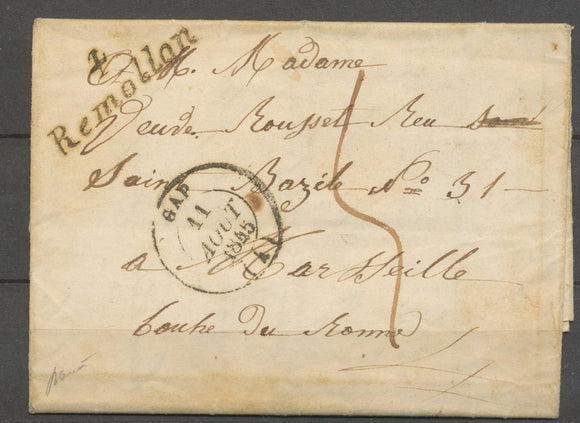 4
Remollon
A M. Madame
Veuve Rousset Reu
Saint Bazile No 31
a Marseille
bouhe du Ronne
GAP
11
AOUT
1845
(4)
5